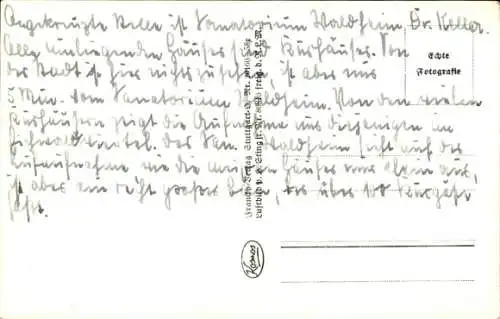 Angekreuzte Stelle ist Sanatorium Waldheim Dr. Keller.
Alle umliegenden Häuser sind Kurhäuser. Von
der Stadt ist hier nichts zu sehen, ist aber nur
5 Min. vom Sanatorium Waldheim. Von den vielen
Kurhäusern zeigt die Aufnahme nur diejenigen im
viertel. Das San. Waldheim sieht auf der
Aufnahme wie die anderen Häuser nur klein aus,
ist aber ein recht großer Bau, der über 100 Kurgäste
faßt.
Echte
Fotografie
Franckh-Verlag Stuttgart-O, Nr.
Luftbild v. P. Strähle
Kosmos